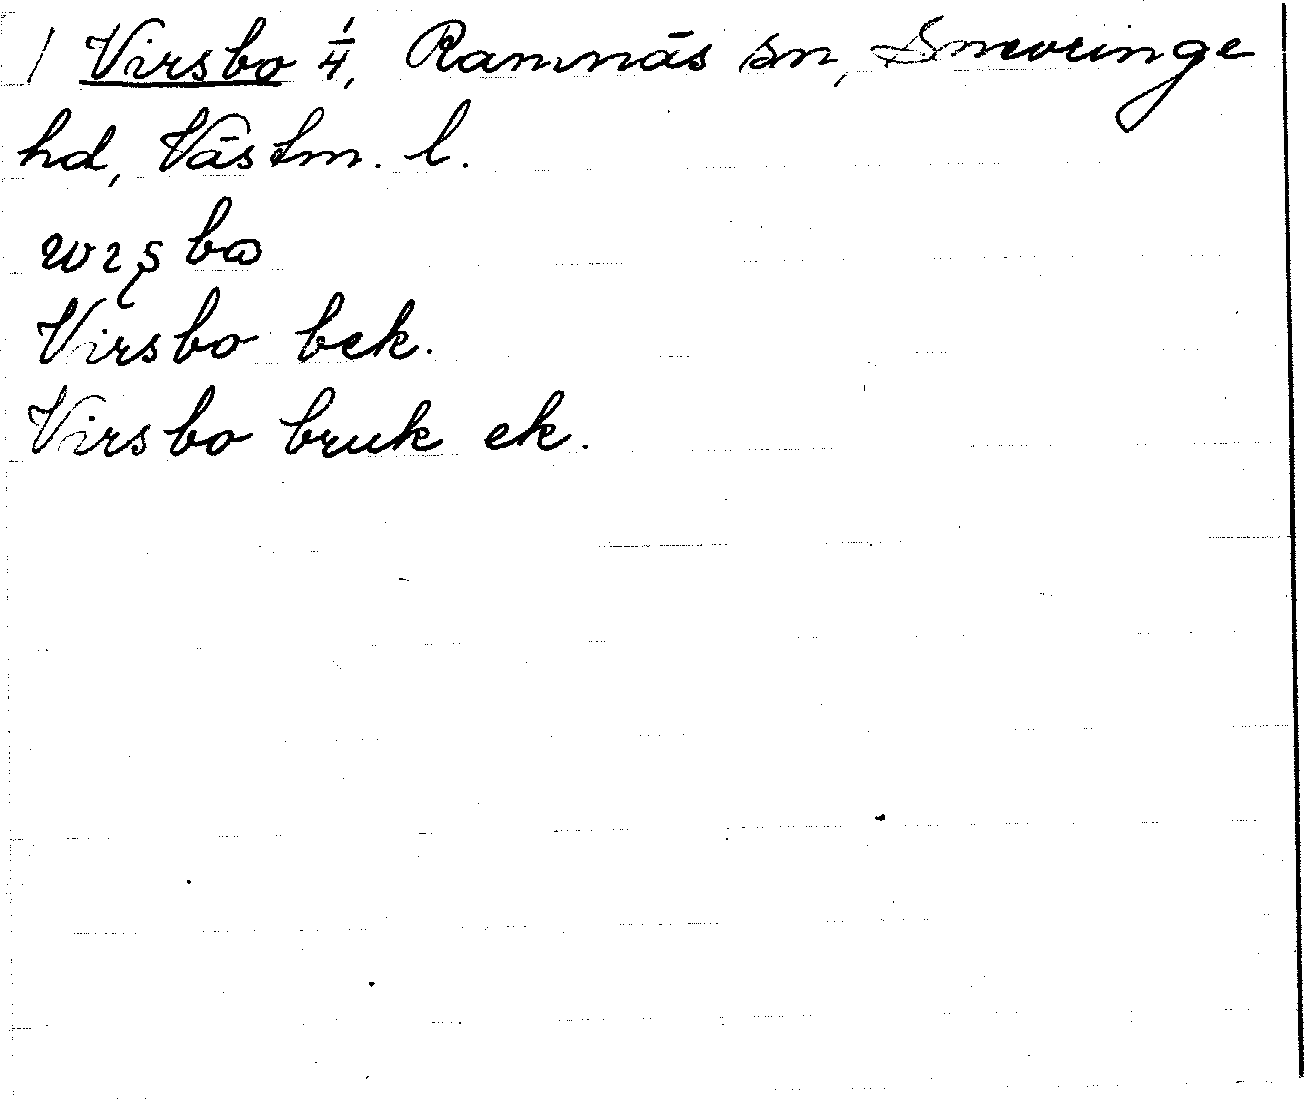 / Virsbo 1/4, Ramnäs sn, Snevringe
hd, Västm. l.
vɪʂbω
Virsbo bek.
Virsbo bruk ek.